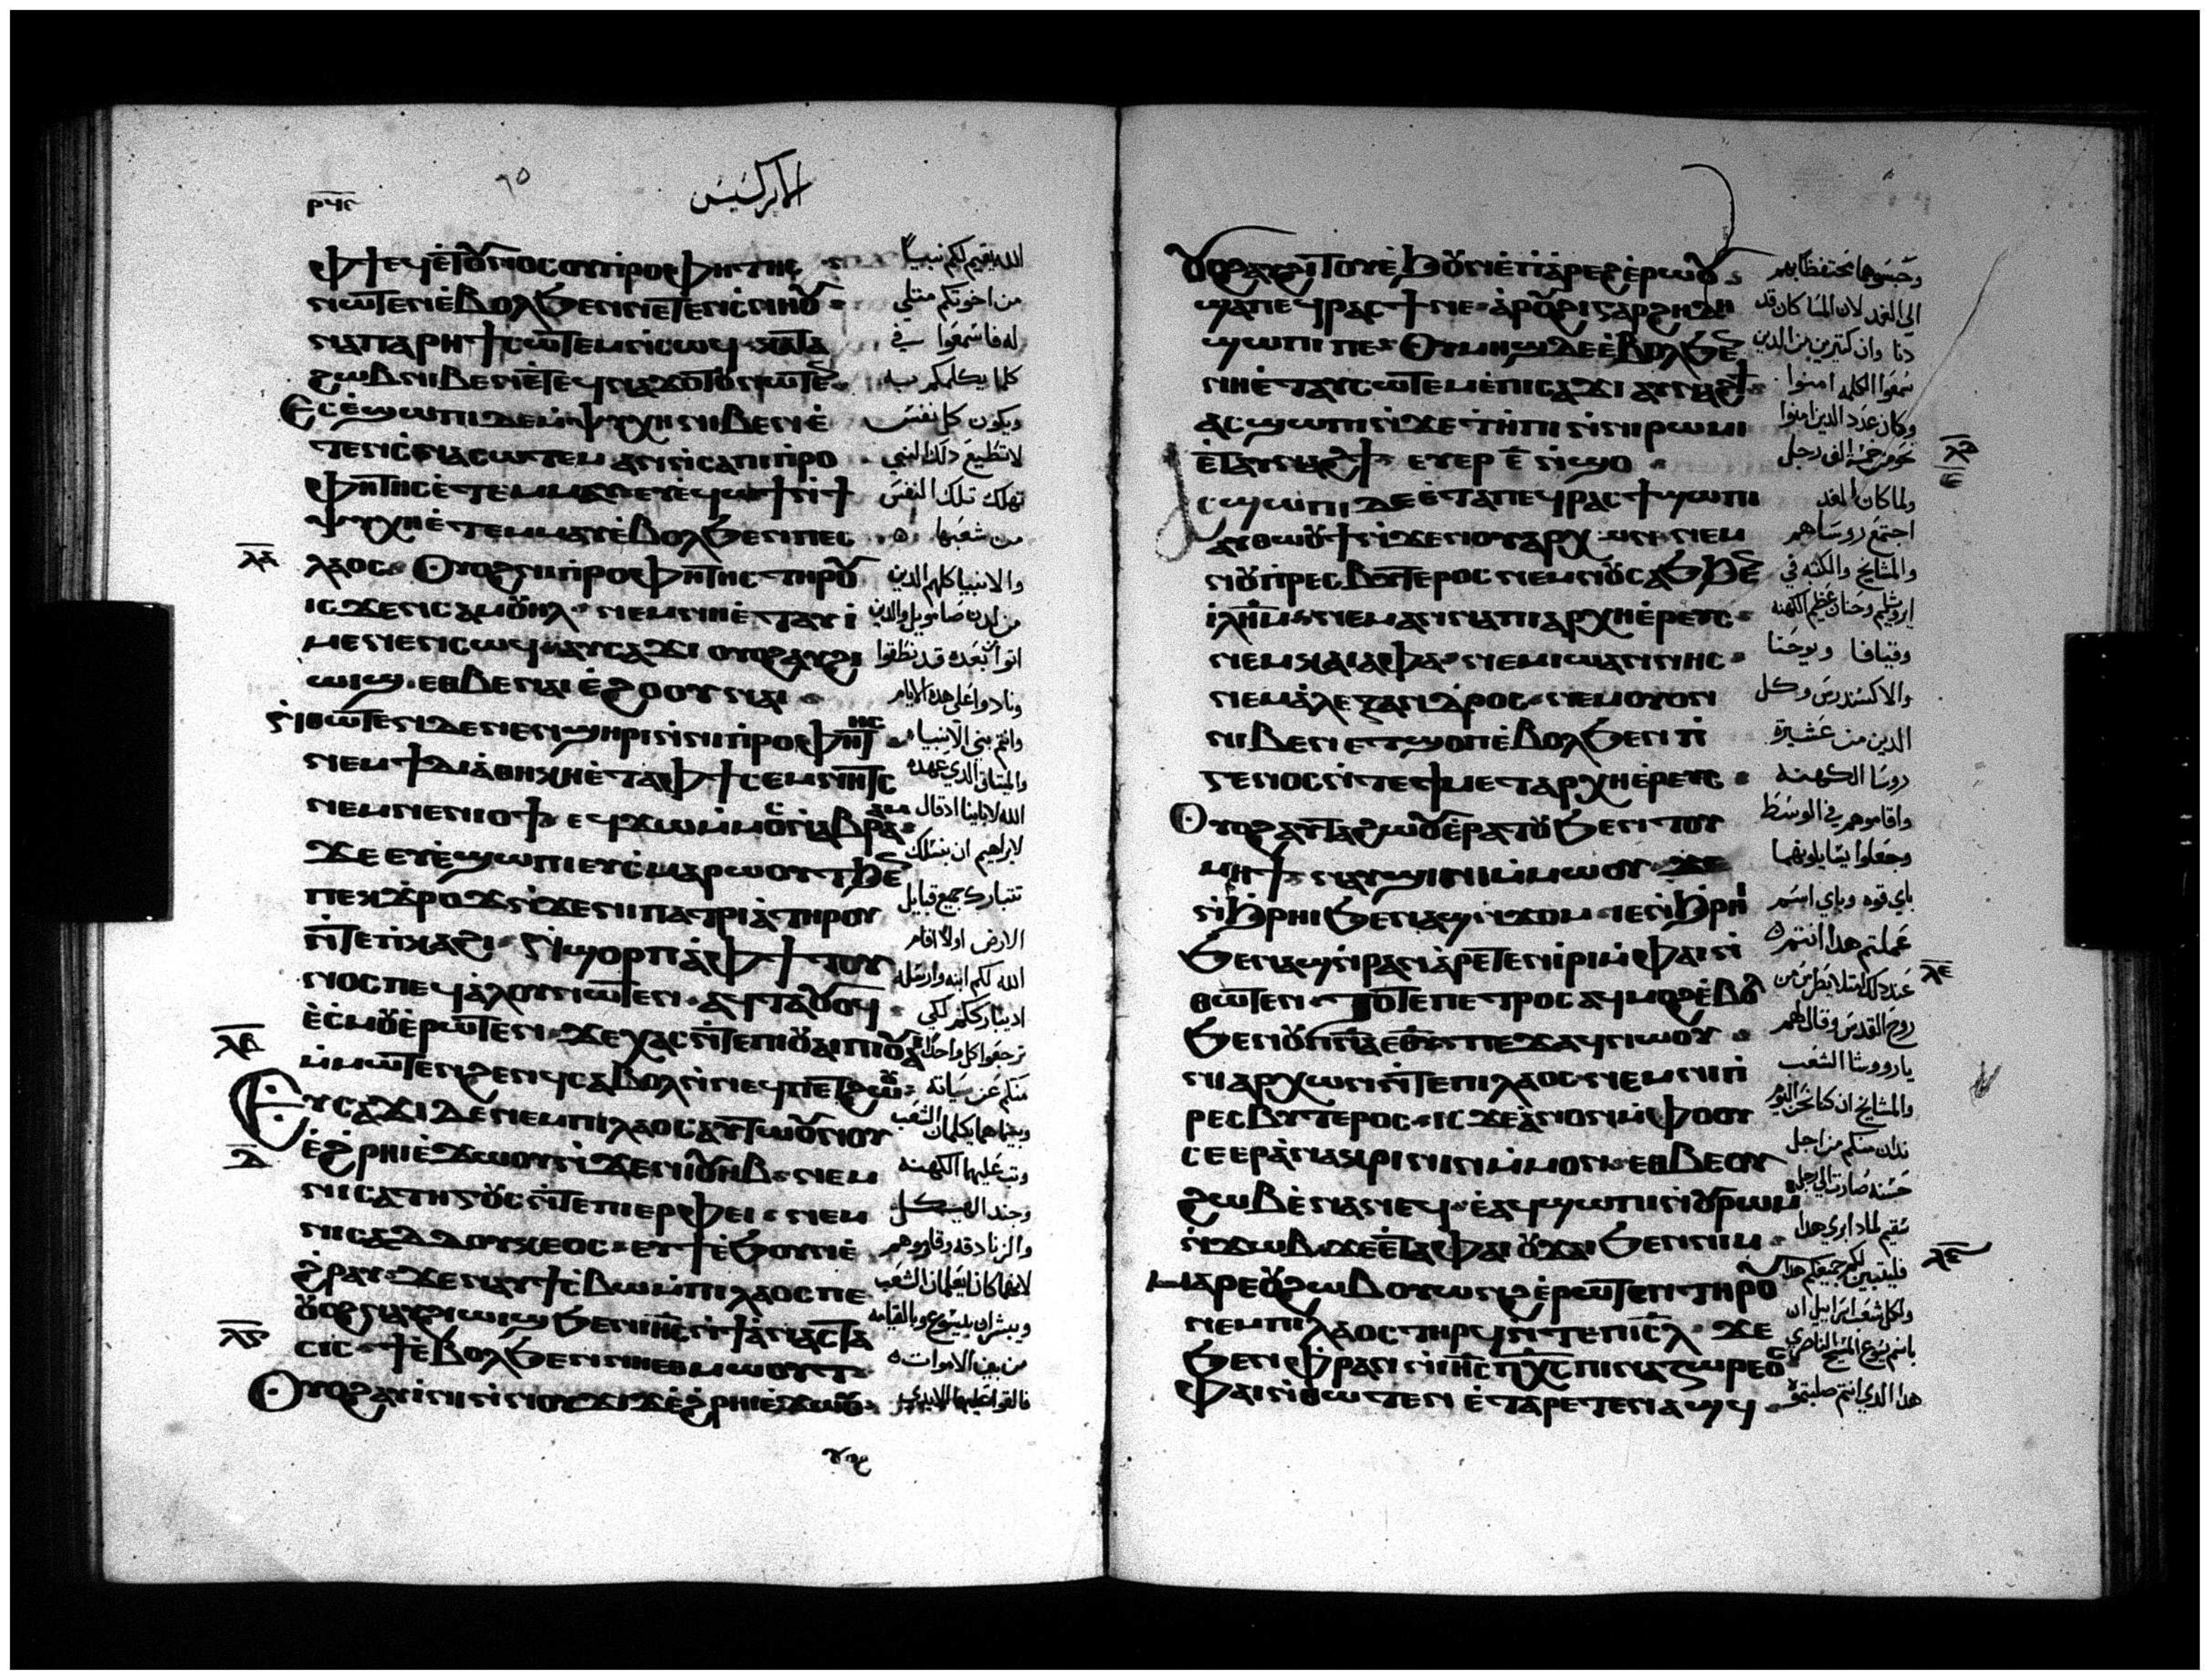 ⲣϥⲋ
الابركسيس
ⲫϯ ⲉϥⲉ̀ⲧⲟⲩⲛⲟⲥ ⲟⲩⲡ̀ⲣⲟⲫⲏⲧⲏⲥ
ⲛⲱⲧⲉⲛ ⲉ̀ⲃⲟⲗϧⲉⲛ ⲛⲉⲧⲉⲛⲥ̀ⲛⲏⲟⲩ
ⲙ̀ⲡⲁⲣⲏϯ ⲥⲱⲧⲉⲙ ⲛ̀ⲥⲱϥ ⲕⲁⲧⲁ
ϩⲱⲃ ⲛⲓⲃⲉⲛ ⲉ̀ⲧⲉϥⲛⲁϫⲟⲧⲟⲩ ⲛⲱⲧⲉⲛ
Ⲉⲥⲉ̀ϣⲱⲡⲓ ⲇⲉ ⲙ̀ⲯⲩⲭⲏ ⲛⲓⲃⲉⲛ ⲉ̀
ⲧⲉⲛⲥ̀ⲛⲁⲥⲱⲧⲉⲙ ⲁⲛ ⲛ̀ⲥⲁ ⲡⲓⲡ̀ⲣⲟ
ⲫⲏⲧⲏⲥ ⲉ̀ⲧⲉⲙⲙⲁⲩ ⲉⲩⲉ̀ϥⲱϯ ⲛ̀ϯ
ⲯⲩⲭⲏ ⲉ̀ⲧⲉⲙⲙⲁⲩ ⲉ̀ⲃⲟⲗϧⲉⲛ ⲡⲉⲥ
ⲗⲁ
ⲗⲁⲟⲥ Ⲟⲩⲟϩ ⲛⲓⲡ̀ⲣⲟⲫⲏⲧⲏⲥ ⲧⲏⲣⲟⲩ
ⲓⲥϫⲉⲛ ⲥⲁⲙⲟⲩⲏⲗ ⲛⲉⲙ ⲛⲏⲉ̀ⲧⲁⲩⲓ̀
ⲙⲉⲛⲉⲛⲥⲱϥ ⲁⲩⲥⲁϫⲓ ⲟⲩⲟϩ ⲁⲩϩⲓ
ⲱⲓϣ ⲉⲑⲃⲉ ⲛⲁⲓⲉ̀ϩⲟⲟⲩ ⲛⲁⲓ
Ⲛ̀ⲑⲱⲧⲉⲛ ⲇⲉ ⲛⲉⲛϣⲏⲣⲓ ⲛ̀ⲛⲓⲡ̀ⲣⲟⲫⲏⲧⲏⲥ
ⲛⲉⲙ ϯⲇⲓⲁ̀ⲑⲏⲕⲏ ⲉ̀ⲧⲁ ⲫϯ ⲥⲉⲙⲛⲏⲧⲥ
ⲛⲉⲙ ⲛⲉⲛⲓⲟϯ ⲉϥϫⲱ ⲙ̀ⲙⲟⲥ ⲛ̀ⲁⲃⲣⲁⲁⲙ
ϫⲉ ⲉⲩⲉ̀ϣⲱⲡⲓ ⲉⲩⲥ̀ⲙⲁⲣⲱⲟⲩⲧ ϧⲉⲛ
ⲡⲉⲕϫ̀ⲣⲟϫ ⲛ̀ϫⲉ ⲛⲓⲡⲁⲧⲣⲓⲁ̀ ⲧⲏⲣⲟⲩ
ⲛ̀ⲧⲉ ⲡ̀ⲕⲁϩⲓ Ⲛ̀ϣⲟⲣⲡ ⲁ̀ ⲫϯ ⲧⲟⲩ
ⲛⲟⲥ ⲡⲉϥⲁ̀ⲗⲟⲩ ⲛⲱⲧⲉⲛ ⲁϥⲧⲁⲟⲩⲟϥ
ⲉ̀ⲥⲙⲟⲩ ⲉ̀ⲣⲱⲧⲉⲛ ϫⲉ ⲭⲁⲥ ⲛ̀ⲧⲉ ⲡⲓⲟⲩⲁⲓ ⲡⲓⲟⲩⲁⲓ
ⲗⲃ
ⲙ̀ⲙⲱⲧⲉⲛ ϩⲉⲛϥ ⲥⲁⲃⲟⲗ ⲛ̀ⲛⲉϥⲡⲉⲧϩⲱⲟⲩ
Ⲉⲩⲥⲁϫⲓ ⲇⲉ ⲛⲉⲙ ⲡⲓⲗⲁⲟⲥ ⲁⲩⲧⲱⲟⲩⲛⲟⲩ
ⲇ
ⲉ̀ϩ̀ⲣⲏⲓ ⲉ̀ϫⲱⲟⲩ ⲛ̀ϫⲉ ⲛⲓⲟⲩⲏⲃ ⲛⲉⲙ
ⲛⲓⲥⲁⲧⲏⲅⲟⲩⲥ ⲛ̀ⲧⲉ ⲡⲓⲉⲣⲫⲉⲓ ⲛⲉⲙ
ⲛⲓⲥⲁⲇⲇⲟⲩⲕⲉⲟⲥ ⲉⲩϯ ⲉ̀ϧⲟⲩⲛ ⲉ̀
ϩ̀ⲣⲁⲩ ϫⲉ ⲛⲁⲩϯⲥ̀ⲃⲱ ⲙ̀ⲡⲓⲗⲁⲟⲥ ⲡⲉ
ⲟⲩⲟϩ ⲛⲁⲩϩⲓⲱⲓϣ ϧⲉⲛ ⲓⲏⲥ ⲛ̀ϯⲁ̀ⲛⲁⲥⲧⲁ
ⲗⲅ
ⲥⲓⲥ ϯⲉ̀ⲃⲟⲗϧⲉⲛ ⲛⲏⲉⲑⲙⲱⲟⲩⲧ
Ⲟⲩⲟϩ ⲁⲩⲓ̀ⲛⲓ ⲛ̀ⲛⲟⲩϫⲓϫ ⲉ̀ϩ̀ⲣⲏⲓ ⲉ̀ϫⲱⲟⲩ
الله يقيم لكم نبيا
من اخوتكم مثلي
له فاسمعوا في
كلما يكلمكم به
ويكون كل نفس
لا تطيع ذلك النبي
تهلك تلك النفس
من شعبها
والانبيا كلهم الذين
من لدن صامويل والذين
اتوا بعده قد نطقوا
ونادوا على هذه الايام
وانتم بني الانبياء
والميثاق الذي عهده
الله لابائنا اذ قال
لابراهيم ان بنسلك
تتبارك جميع قبايل
الارض اولا اقام
الله لكم ابنه وارسله
ليبارككم لكي
ترجعوا كل واحد
منكم عن سياته
وبينما هما يكلمان الشعب
وثب عليهما الكهنة
وجند الهيكل
والزنادقة وقاوموهم
لانهما كانا يعلمان الشعب
ويبشران بيسوع بالقيامة
من بين الاموات
فالقوا عليهما الايدي
ⲟⲩⲟϩ
ⲟⲩⲟϩ ⲁⲩϩⲓⲧⲟⲩ ⲉ̀ϧⲟⲩⲛ ⲉ̀ⲡⲁ̀ⲣⲉϩ ⲉ̀ⲣⲱⲟⲩ
ϣⲁ ⲡⲉϥⲣⲁⲥϯ ⲛⲉ ⲁ̀ⲣⲟⲩϩⲓ ⲅⲁⲣ ϩⲏⲇⲏ
ϣⲱⲡⲓ ⲡⲉ Ⲟⲩⲙⲏϣ ⲇⲉ ⲉ̀ⲃⲟⲗϧⲉⲛ
ⲛⲏⲉ̀ⲧⲁⲩⲥⲱⲧⲉⲙ ⲉ̀ⲡⲓⲥⲁϫⲓ ⲁⲩⲛⲁϩϯ
ⲁⲥϣⲱⲡⲓ ⲛ̀ϫⲉ ⲧ̀ⲏⲡⲓ ⲛ̀ⲛⲓⲣⲱⲙⲓ
ⲗⲇ
ⲉ̀ⲧⲁⲩⲛⲁϩϯ ⲉⲩⲉⲣ ⲉ̄ ⲛ̀ϣⲟ
ⲉ̄
ⲁⲥϣⲱⲡⲓ ⲇⲉ ⲉ̀ⲧⲁ ⲡⲉϥⲣⲁⲥϯ ϣⲱⲡⲓ
ⲁⲩⲑⲱⲟⲩϯ ⲛ̀ϫⲉ ⲛⲟⲩⲁⲣⲭⲱⲛ ⲛⲉⲙ
ⲛⲟⲩⲡⲣⲉⲥⲃⲩⲧⲉⲣⲟⲥ ⲛⲉⲙ ⲛⲟⲩⲥⲁϧ ϧⲉⲛ
ⲓ̀ⲗⲏⲙ ⲛⲉⲙ ⲁⲛⲛⲁ ⲡⲓⲁⲣⲭⲏⲉ̀ⲣⲉⲩⲥ
ⲛⲉⲙ ⲕⲁⲓⲁⲫⲁ ⲛⲉⲙ ⲓⲱⲁⲛⲛⲏⲥ
ⲛⲉⲙ ⲁ̀ⲗⲉⲝⲁⲛⲇⲣⲟⲥ ⲛⲉⲙ ⲟⲩⲟⲛ
ⲛⲓⲃⲉⲛ ⲉⲧϣⲟⲡ ⲉ̀ⲃⲟⲗϧⲉⲛ ⲡⲓ
ⲅⲉⲛⲟⲥ ⲛ̀ⲧⲉ ϯⲙⲉⲧⲁⲣⲭⲏⲉ̀ⲣⲉⲩⲥ
Ⲟⲩⲟϩ ⲁⲩⲧⲁϩⲱⲟⲩ ⲉ̀ⲣⲁⲧⲟⲩ ϧⲉⲛ ⲧⲟⲩ
ⲙⲏϯ ⲛⲁⲩϣⲓⲛⲓ ⲙ̀ⲙⲱⲟⲩ ϫⲉ
ⲛ̀ϧⲣⲏⲓ ϧⲉⲛ ⲁϣ ⲛ̀ϫⲟⲙ ⲓⲉ ⲛ̀ϧⲣⲏⲓ
ϧⲉⲛ ⲁϣ ⲛ̀ⲣⲁⲛ ⲁ̀ⲣⲉⲧⲉⲛⲓ̀ⲣⲓ ⲙ̀ⲫⲁⲓ ⲛ̀
ⲗⲉ
ⲑⲱⲧⲉⲛ Ⲧⲟⲧⲉ ⲡⲉⲧⲣⲟⲥ ⲁϥⲙⲟϩ ⲉ̀ⲃⲟⲗ
ϧⲉⲛ ⲟⲩⲡⲛⲁ ⲉⲑⲩ ⲡⲉϫⲁϥ ⲛⲱⲟⲩ
ⲛⲓⲁⲣⲭⲱⲛ ⲛ̀ⲧⲉ ⲡⲓⲗⲁⲟⲥ ⲛⲉⲙ ⲛⲓⲡ
ⲣⲉⲥⲃⲩⲧⲉⲣⲟⲥ ⲓⲥϫⲉ ⲁ̀ⲛⲟⲛ ⲙ̀ⲫⲟⲟⲩ
ⲥⲉⲉⲣⲁ̀ⲛⲁⲕⲣⲓⲛⲓⲛ ⲙ̀ⲙⲟⲛ ⲉⲑⲃⲉ ⲟⲩ
ϩⲱⲃ ⲉ̀ⲛⲁⲛⲉϥ ⲉ̀ⲁϥϣⲱⲡⲓ ⲛ̀ⲟⲩⲣⲱⲙⲓ
ⲛ̀ϫⲱⲃ ϫⲉ ⲉ̀ⲧⲁ ⲫⲁⲓ ⲟⲩϫⲁⲓ ϧⲉⲛ ⲛⲓⲙ
ⲗⲋ
ⲙⲁⲣⲉ ⲟⲩϩⲱⲃ ⲟⲩⲱⲛϩ ⲉ̀ⲣⲱⲧⲉⲛ ⲧⲏⲣⲟⲩ
ⲛⲉⲙ ⲡⲓⲗⲁⲟⲥ ⲧⲏⲣϥ ⲛ̀ⲧⲉ ⲡⲓⲥⲗ ϫⲉ
ϧⲉⲛ ⲫ̀ⲣⲁⲛ ⲛ̀ⲓⲏⲥ ⲡⲭⲥ ⲡⲓⲛⲁⲍⲱⲣⲉⲟⲥ
ⲫⲁⲓ ⲛ̀ⲑⲱⲧⲉⲛ ⲉ̀ⲧⲁⲣⲉⲧⲉⲛⲁϣϥ
وحبسوهما محتفظا بهم
الى الغد لان المسا كان قد
دنا وان كثيرين من الذين
سمعوا الكلمه امنوا
وكان عدد الذين امنوا
نحو من خمسة الف رجل
ولما كان الغد
اجتمع روساهم
والمشايخ والكتبه في
ايروشليم وحنان عظيم الكهنه
وقيافا ويوحنا
والاكسندرس وكل
الذين من عشيرة
روسا الكهنه
واقاموهم في الوسط
وجعلوا يسايلونهما
باي قوه وباي اسم
عملتم هذا انتم
عند ذلك امتلا بطرس من
روح القدس وقال لهم
يا روسا الشعب
والمشايخ ان كنا نحن اليوم
ندان منكم من اجل
حسنه صارت الى رجل
سقيم لماذا بري هذا
فليتبين لكم جميعكم هذا
ولكل شعب اسراييل ان
باسم يسوع المسيح الناصري
هذا الذي انتم صلبتموه